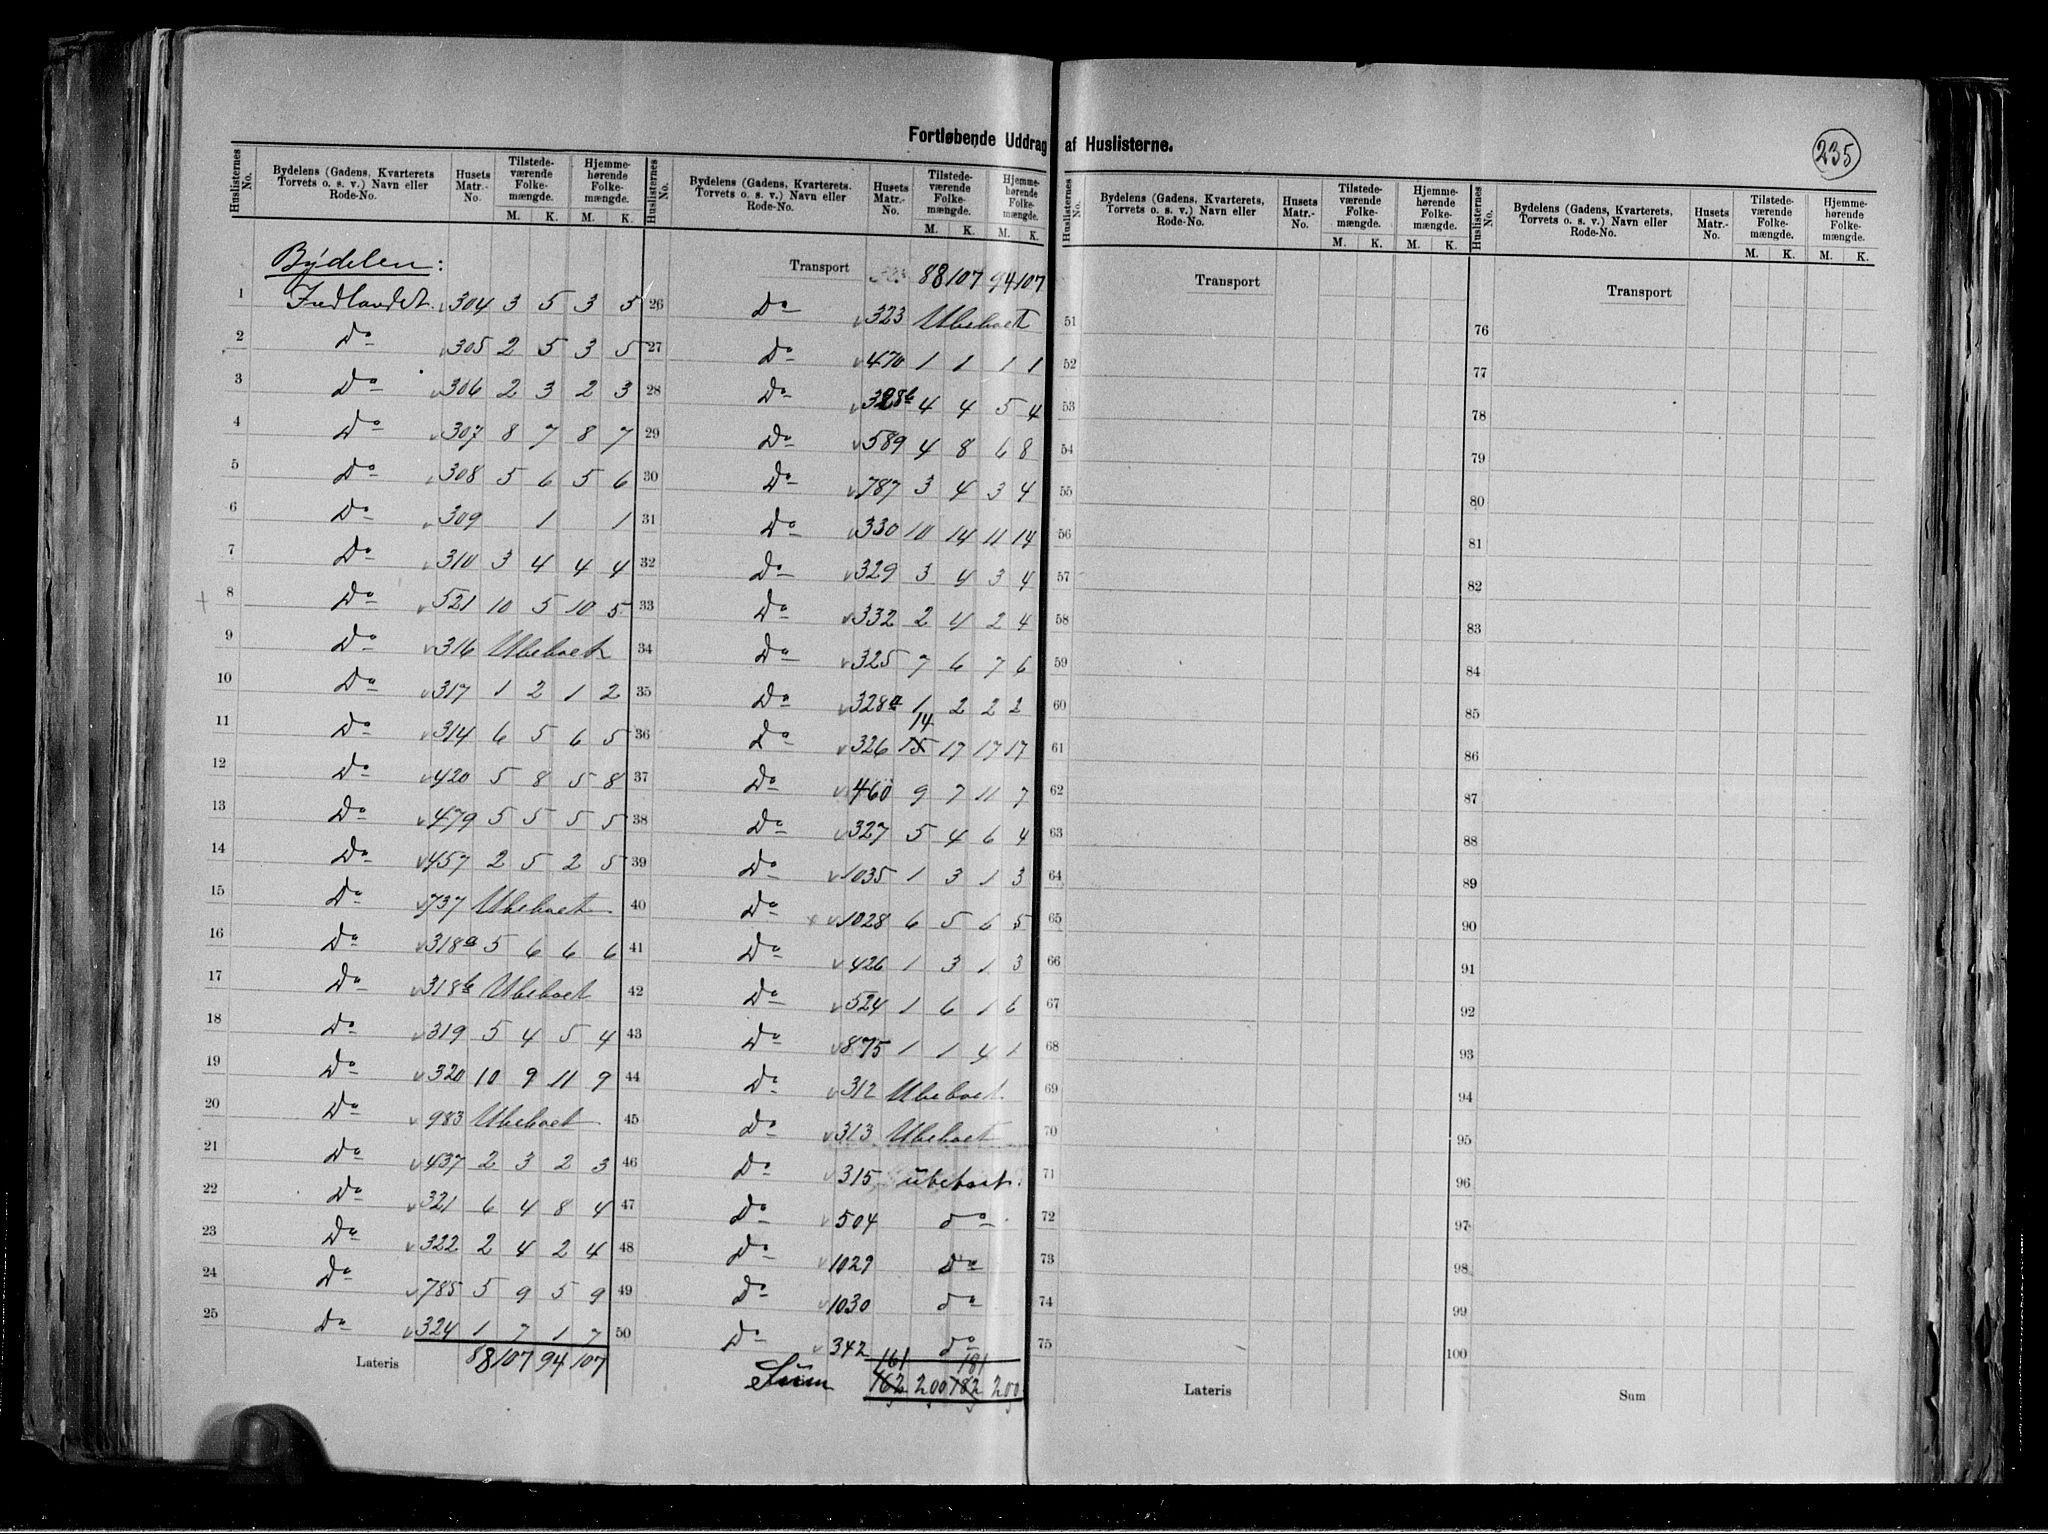 Fortløbende Uddrag af Huslisterne.
235
Huslisternes No. Bydelens (Gadens, Kvarterets Torvets o. s. v.) Navn eller Rode-No. Husets Matr.-No. Tilstede-værende Folke-mængde. M. K. Hjemme-hørende Folke-mængde. M. K.
Bydelen:
1 Indlandet 304 3 5 3 5
2 Do 305 2 5 3 5
3 Do 306 2 3 2 3
4 Do 307 8 7 8 7
5 Do 308 5 6 5 6
6 Do 309 1 1
7 Do 310 3 4 4 4
8 Do 521 10 5 10 5
9 Do 316 Ubeboet
10 Do 317 1 2 1 2
11 Do 314 6 5 6 5
12 Do 420 5 8 5 8
13 Do 479 5 5 5 5
14 Do 457 2 5 2 5
15 Do 737 Ubeboet
16 Do 318a 5 6 6 6
17 Do 318b Ubeboet
18 Do 319 5 4 5 4
19 Do 320 10 9 11 9
20 Do 983 Ubeboet
21 Do 437 2 3 2 3
22 Do 321 6 4 8 4
23 Do 322 2 4 2 4
24 Do 785 5 9 5 9
25 Do 324 1 7 1 7
Lateris 88 107 94 107
Huslisternes No. Bydelens (Gadens, Kvarterets, Torvets o. s. v.) Navn eller Rode-No. Husets Matr.-No. Tilstede-værende Folke-mængde. M. K. Hjemme-hørende Folke-mængde. M. K.
Transport 88 107 94 107
26 Do 323 Ubeboet
27 Do 470 1 1 1 1
28 Do 328b 4 4 5 4
29 Do 589 4 8 6 8
30 Do 787 3 4 3 4
31 Do 330 10 14 11 14
32 Do 329 3 4 3 4
33 Do 332 2 4 2 4
34 Do 325 7 6 7 6
35 Do 328a 1 2 2 2
14
36 Do 326 15 17 17 17
37 Do 460 9 7 11 7
38 Do 327 5 4 6 4
39 Do 1035 1 3 1 3
40 Do 1028 6 5 6 5
41 Do 426 1 3 1 3
42 Do 524 1 6 1 6
43 Do 875 1 1 4 1
44 Do 312 Ubeboet
45 Do 313 Ubeboet
46 Do 315 ubeboet
47 Do 504 do
48 Do 1029 Do
49 Do 1030 do
50 Do 342 do
161 181
Sum 162 200 182 200
Huslisternes No. Bydelens (Gadens, Kvarterets Torvets o. s. v.) Navn eller Rode-No. Husets Matr.-No. Tilstede-værende Folke-mængde. M. K. Hjemme-hørende Folke-mængde. M. K.
Transport
51
52
53
54
55
56
57
58
59
60
61
62
63
64
65
66
67
68
69
70
71
72
73
74
75
Lateris
Huslisternes No. Bydelens (Gaden, Kvarterets, Torvets o. s. v.) Navn eller Rode-No. Husets Matr.-No. Tilstede-værende Folke-mængde. M. K. Hjemme-hørende Folke-mængde. M. K.
Transport
76
77
78
79
80
81
82
83
84
85
86
87
88
89
90
91
92
93
94
95
96
97
98
99
100
Sum